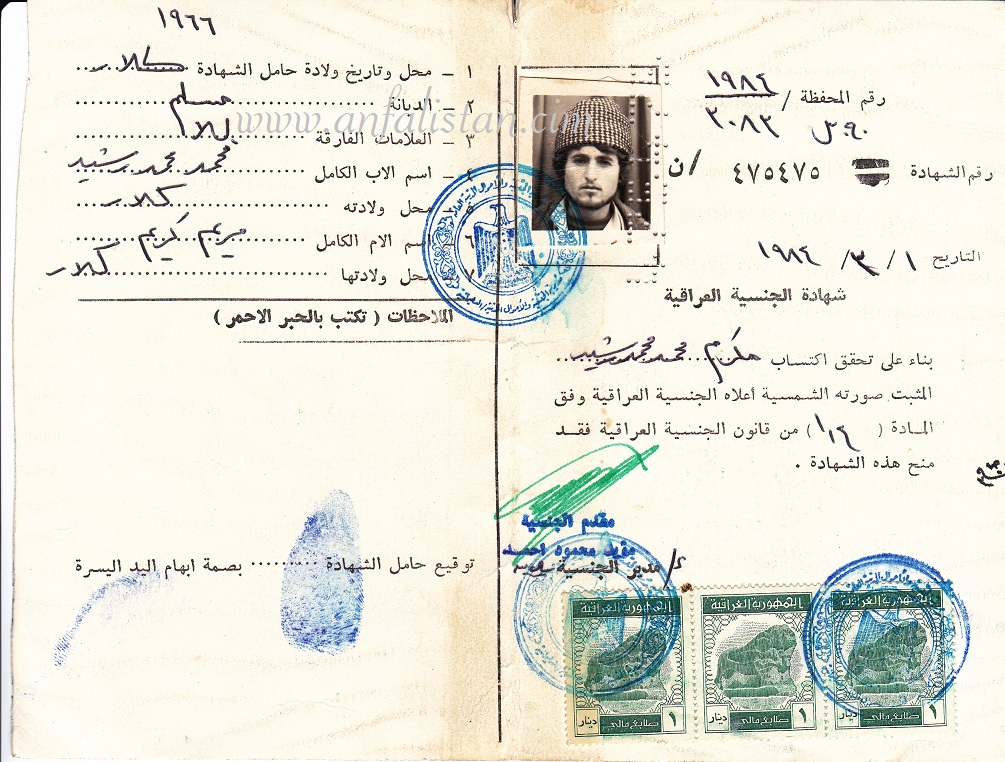 رقم المحفظة / ١٩٨٤
٩٠ س ٣٠٨٢
رقم الشهادة ٤٧٥٤٧٥ / ن
التاريخ ١ / ٣ / ١٩٨٤
شهادة الجنسية العراقية
بناء على تحقق اكتساب مكرم محمد محمد رشيد
المثبت صورته الشمسية أعلاه الجنسية العراقية وفق
المادة ( ) من قانون الجنسية العراقية فقد
منح هذه الشهادة .
مقدم الجنسية
مؤيد محمود احمد
ع/ مدير الجنسية
الجمهورية العراقية
١ دينار
طابع مالي
الجمهورية العراقية
١ دينار
طابع مالي
الجمهورية العراقية
١ دينار
طابع مالي
١٩٦٦
١ ـ محل وتاريخ ولادة حامل الشهادة كلار
٢ ـ الديانة مسلم
٣ ـ العلامات الفارقة
٤ ـ اسم الاب الكامل محمد محمد رشيد
٥ محل ولادته كلار
٦ اسم الام الكامل مريم كريم
٧ محل ولادتها كلار
الملاحظات ( تكتب بالحبر الاحمر )
توقيع حامل الشهادة ......... بصمة ابهام اليد اليسرة
www.anfalistan.com